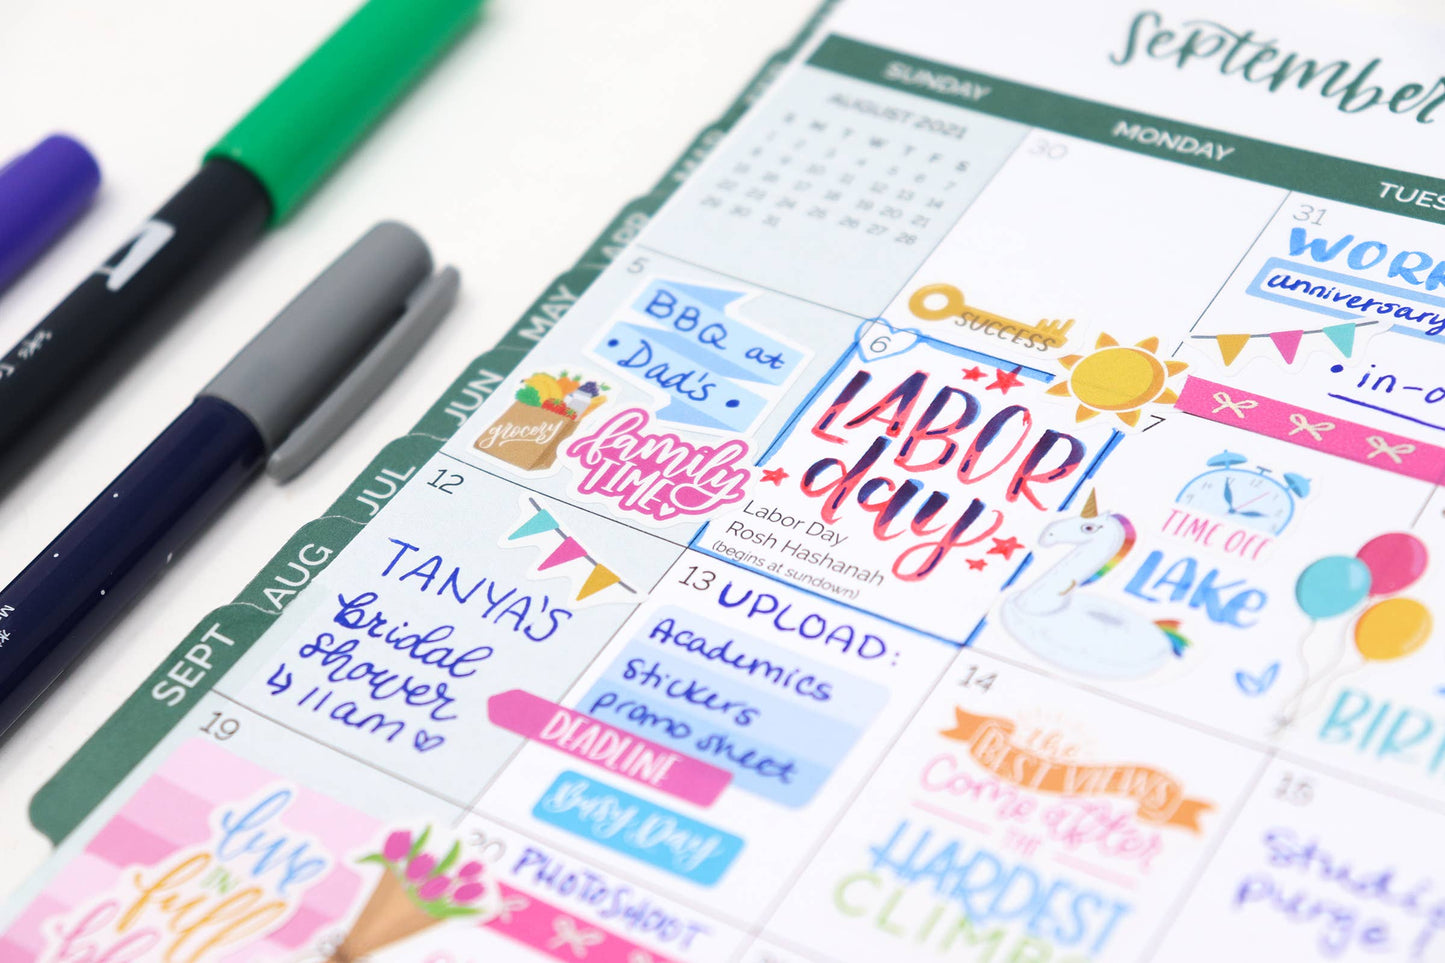 September
SUNDAY
MONDAY
TUES
AUGUST 2021
S M T W T F S
1 2 3 4 5 6 7
8 9 10 11 12 13 14
15 16 17 18 19 20 21
22 23 24 25 26 27 28
29 30 31
30
31
WORK
anniversary
• in-o
MAR
APR
MAY
JUN
JUL
AUG
SEPT
5
BBQ at
• Dad's •
grocery
family
TIME
SUCCESS
6
LABOR
day
Labor Day
Rosh Hashanah
(begins at sundown)
7
TIME OFF
LAKE
BIR
12
TANYA'S
bridal
shower
↳ 11am ♡
13
UPLOAD:
Academics
stickers
promo sheet
DEADLINE
Busy Day
14
the
BEST VIEWS
Come after
THE
HARDEST
CLIMB
15
Studi
purge!
19
live
IN
full
bl
20
PHOTOSHOOT